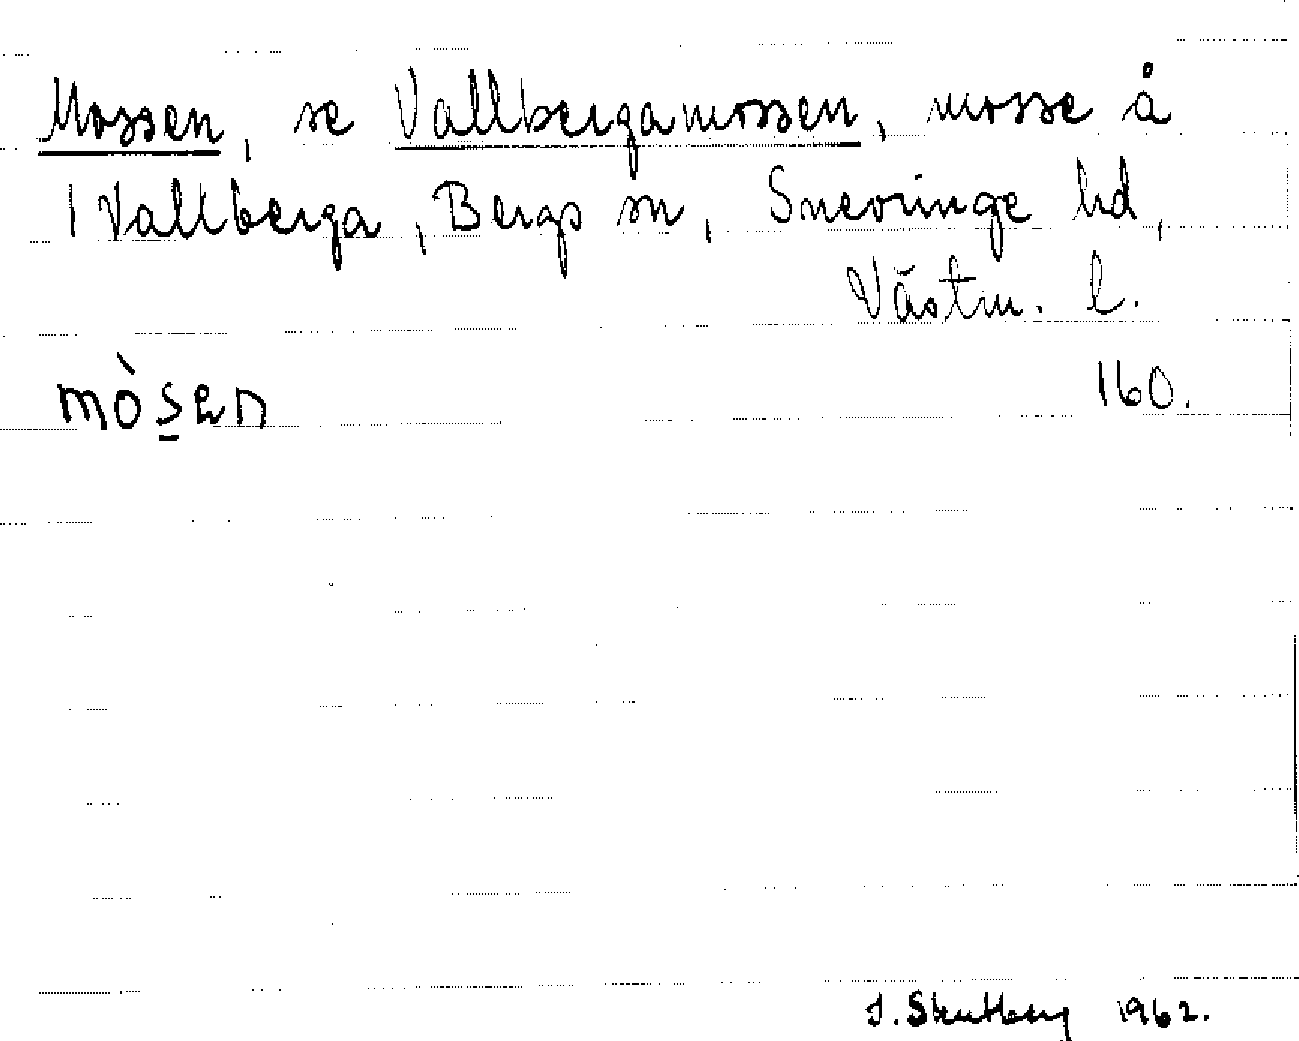 Mossen, se Vallbergamossen, mosse å
1 Vallberga, Bergs sn, Snevringe hd,
Västm. l.
mòsen 160.
1962.